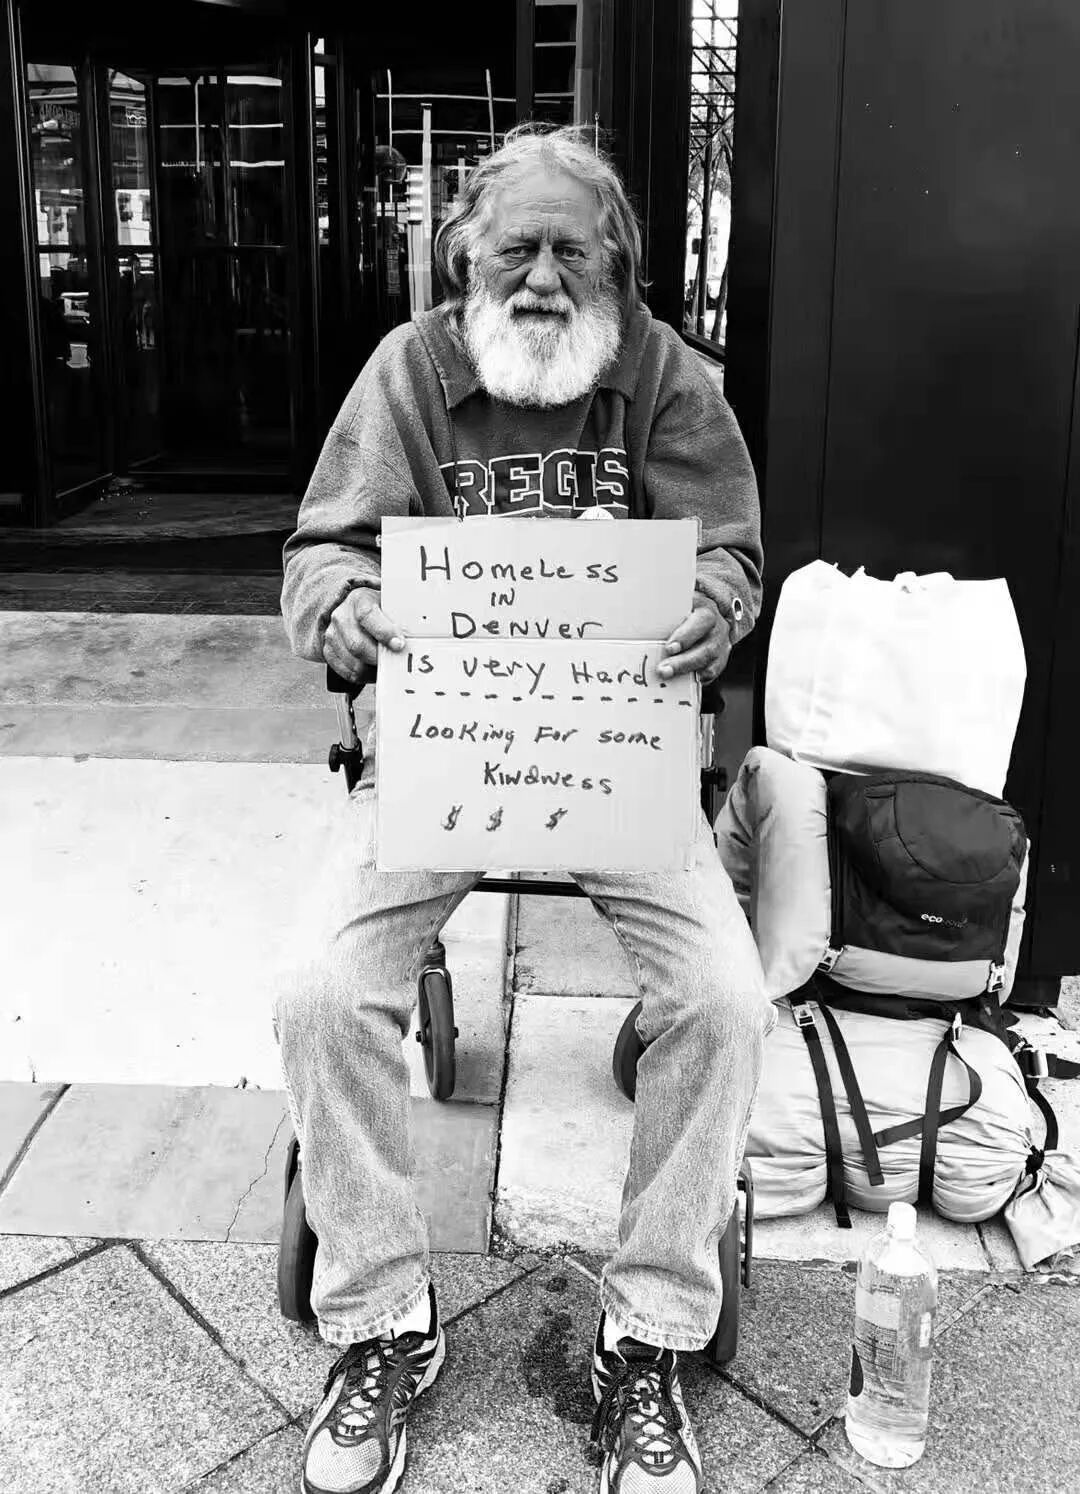 REGIS
HomeLess
IN
DeNver
Is very Hard.
- - - - - - - - -
LooKiNg For some
KiNdNess
$ $ $
eco